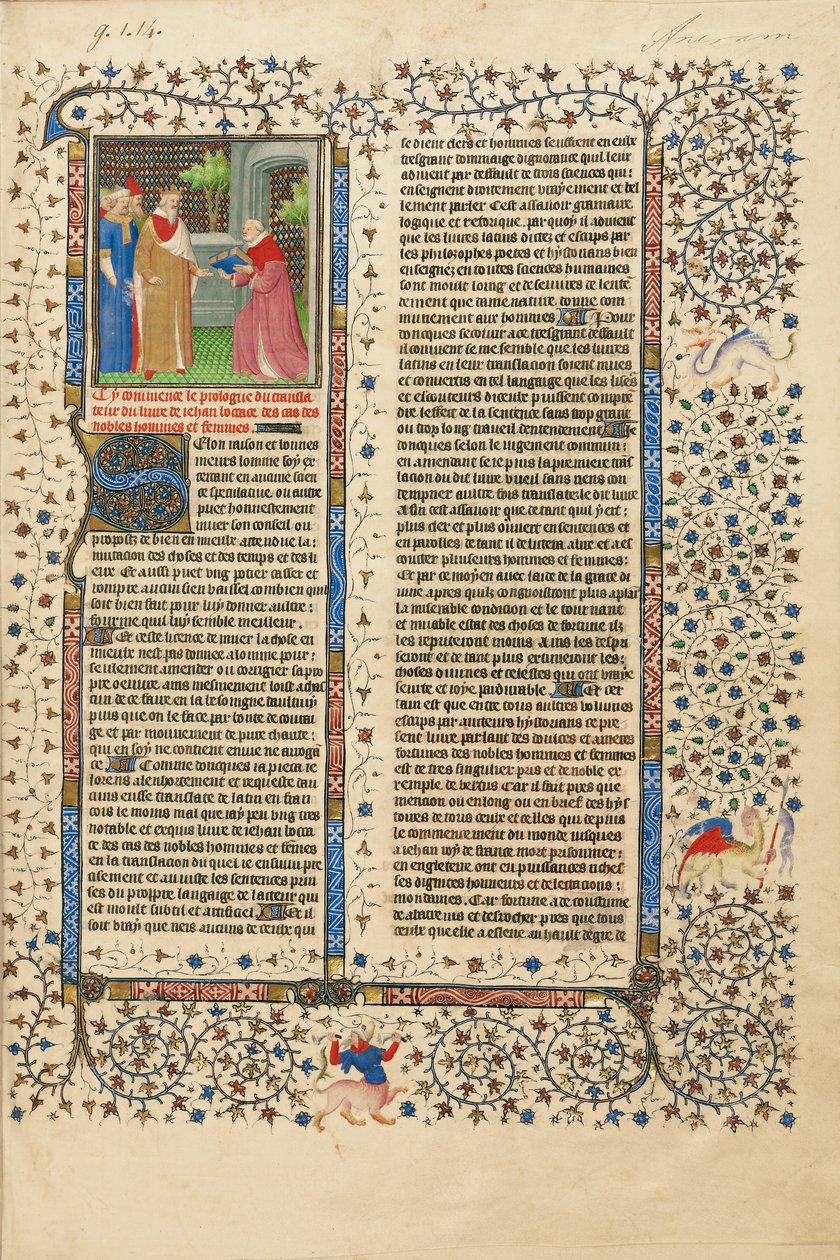 g. 1. 14.
Cy commence le prologue du transla
teur du livre de iehan bocace des cas des
nobles hommes et femmes.
Selon raison et bonnes
meurs lomme soy ex
cercant en aucune scien
ce speculative ou autre
puet honnestement
muer son conseil ou
propostz de bien en mieulx attendue la
mutacion des choses et des temps et des li
eux Et aussi puet ung potier casser et
rompre aucun sien vaissel combien quil
soit bien fait pour luy donner aultre
fourme qui luy semble meilleur.
Et ceste licence de muer la chose en
mieulx nest pas donnee a lomme pour
seulement amender ou corrigier sa pro
pre oeuvre ains mesmement loist a chas
cun de ce faire en la besoingne daultruy
puis que on le face par bonte de coura
ge et par mouvement de pure charite
qui en soy ne contient envie ne arroga
ce Comme doncques ia pieca ie
lorens a lenhortement et requeste dau
cuns eusse translate de latin en fran
cois le moins mal que iay peu ung tres
notable et exquis livre de iehan bocca
ce des cas des nobles hommes et femes
en la translacion du quel ie ensuivi pre
cisement et au iuste les sentences prin
ses du propre langaige de lacteur qui
est moult subtil et artificiel Et il
soit vray que neis aucuns de ceulx qui
se dient clers et hommes seuffrent en eulx
tresgrant dommaige dignorance quil leur
advient par deffault de trois sciences qui
enseignent droitement vrayement et bel
lement parler Cest assavoir gramaire
logique et retorique par quoy il advient
que les livres latins dictez et escrips par
les philozophes poetes et hystorians bien
enseignez en toutes sciences humaines
sont moult loing et desevrez de lente
dement que dame nature donne com
munement aux hommes Pour
doncques secourir a ce tresgrant deffault
il convient se me semble que les livres
latins en leur translation soient mues
et convertis en tel langaige que les liseurs
et escouteurs diceulx puissent compre
dre leffect de la sentence sans trop grant
ou trop long traveil dentendement Je
doncques selon le iugement commun
en amendant se ie puis la premiere tras
lacion du dit livre vueil sans riens con
tempner aultre fois translater le dit livre
A fin cest assavoir que de tant quil yert
plus cler et plus ouvert en sentences et
en parolles de tant il delictera a lire et a es
couter plusieurs hommes et femmes
Et par ce moyen avec laide de la grace di
vine apres quilz congnoistront plus aplai
la miserable condicion et le tournant
et muable estat des choses de fortune ilz
les reputeront moins Ains les despri
seront et de tant plus extimeront les
choses divines et celestes qui ont vraye
seurte et ioye pardurable Et cer
tain est que entre tous aultres volumes
escrips par aucteurs hystorians ce pre
sent livre parlant des doulces et ameres
fortunes des nobles hommes et femmes
est de tres singulier pris et de noble ex
xemple de vertus Car il fait pres que
mencion ou en long ou en brief des hys
toires de tous ceulx et celles qui depuis
le commencement du monde iusques
a iehan roy de france mort prisonnier
en engleterre ont eu puissances riches
ses dignites honneurs et delectacions
mondaines. Car fortune a de coustume
de abatre ius et desrochier pres que tous
ceulx que elle a esleve au hault degre de